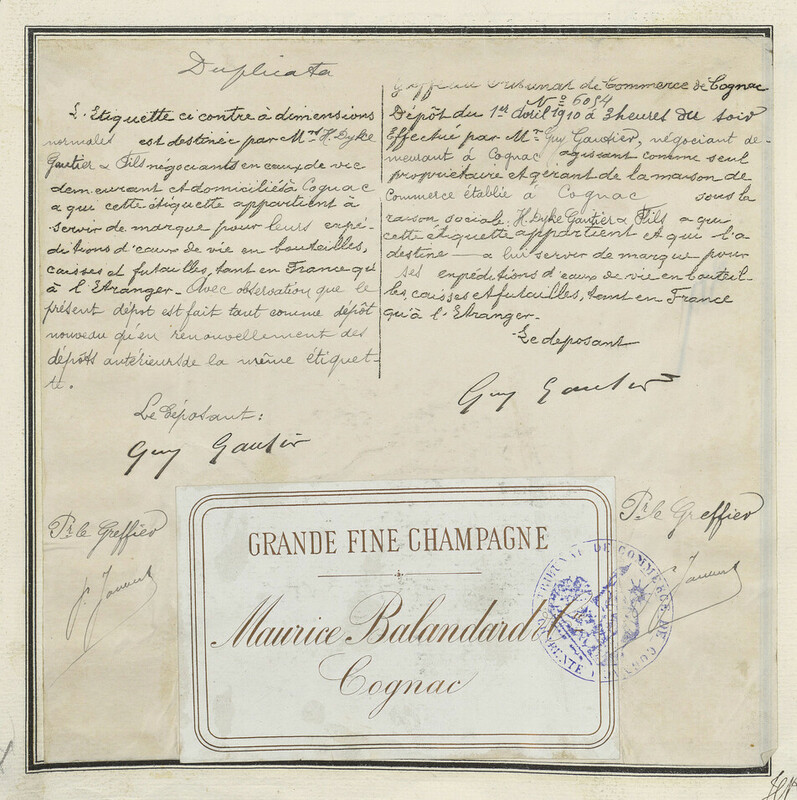 Duplicata
L'Etiquette ci contre à dimensions
normales est destinée par Mrs H. Dyke
Gautier & Fils négociants en eaux de vie
demeurant et domiciliés à Cognac
a qui cette étiquette appartient à
servir de marque pour leurs expé-
ditions d'eaux de vie en bouteilles,
caisses et futailles, tant en France qu'
à l'Etranger. Avec observation que le
présent dépôt est fait tant comme dépôt
nouveau qu'en renouvellement des
dépôts antérieurs de la même étiquet-
te.
Le Déposant:
Guy Gautier
Pr. le Greffier
Greffe du Tribunal de Commerce de Cognac
No 6054
Dépôt du 1er Avril 1910 à 3 heures du soir
Effectué par Mr Guy Gautier, négociant de-
meurant à Cognac agissant comme seul
propriétaire et gérant de la maison de
Commerce établie à Cognac sous la
raison sociale: H. Dyke Gautier & Fils a qui
cette étiquette appartient et qui l'a
destine — a lui servir de marque pour
ses expéditions d'eaux de vie en bouteil-
les, caisses et futailles, tant en France
qu'à l'Etranger.
Le deposant
Guy Gautier
Pr. le Greffier
GRANDE FINE CHAMPAGNE
Maurice Balandard
Cognac
TRIBUNAL DE COMMERCE DE COGNAC